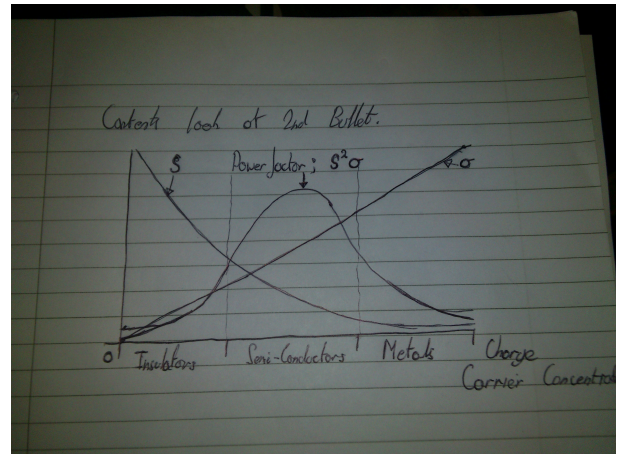 Contents look at 2nd Bullet.
S Power factor; S²σ σ
0 Insulators Semi-Conductors Metals Charge
Carrier